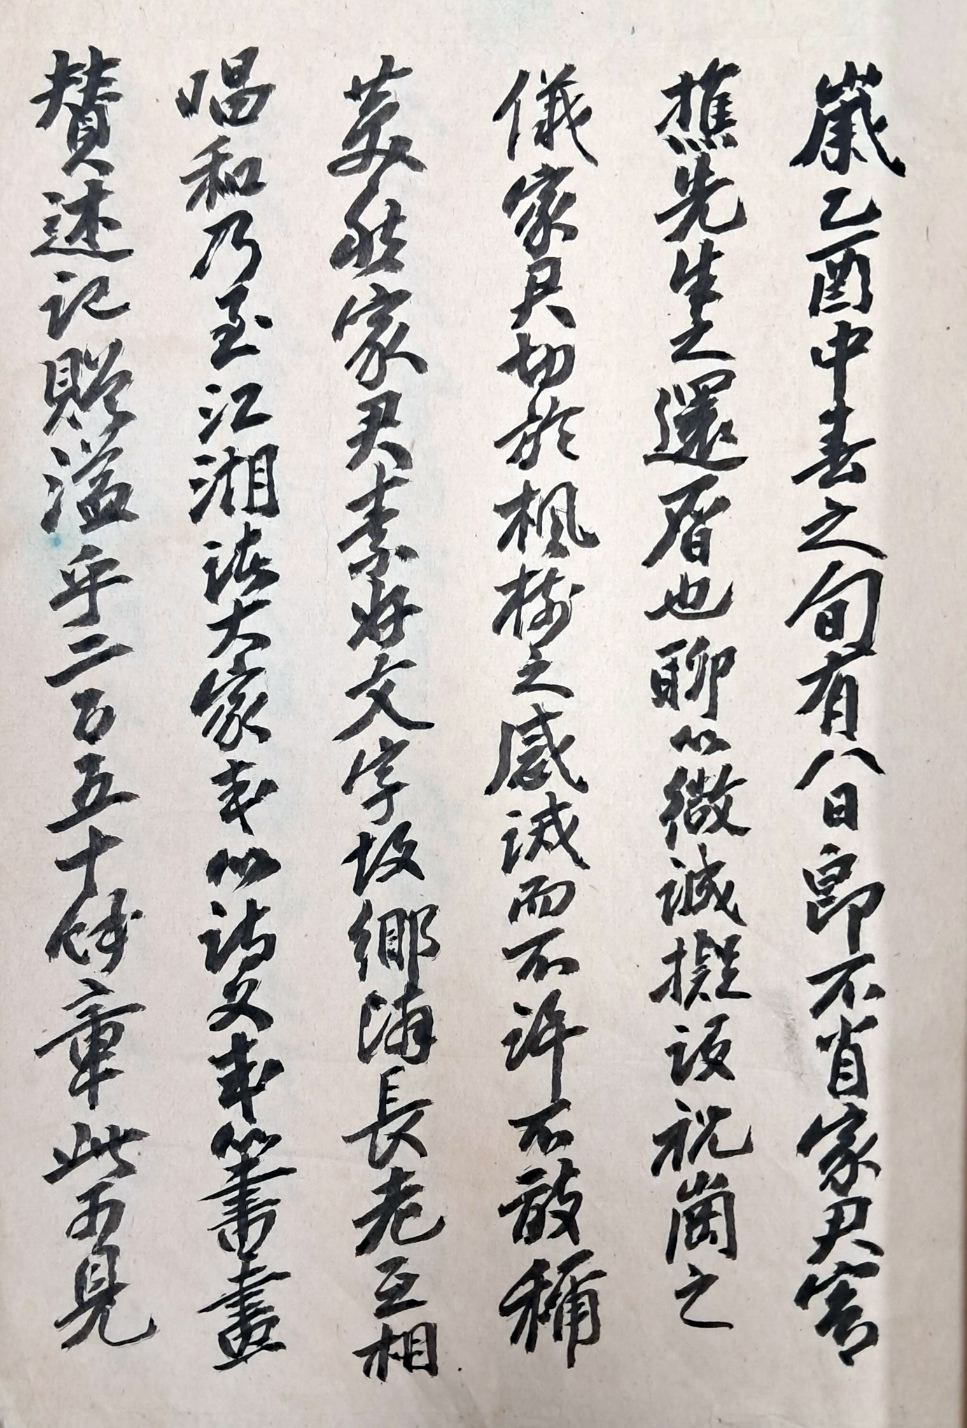 歲乙酉中春之旬有八日郎不肖家尹寄
樵先生之還曆也聊以微誠擬設祝崗之
儀家尹切於楓樹之感誡而不許不敢稱
美然家尹素好文字故鄉海長老互相
唱和乃至江湘諸大家或以詩文或以書畫
贊述記贈溢乎二百五十餘章此可見